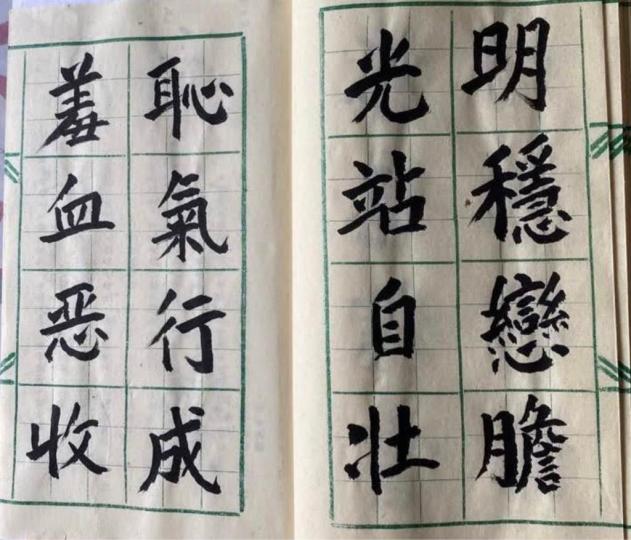 羞恥
血氣
恶行
收成
光明
站穩
自戀
壮膽